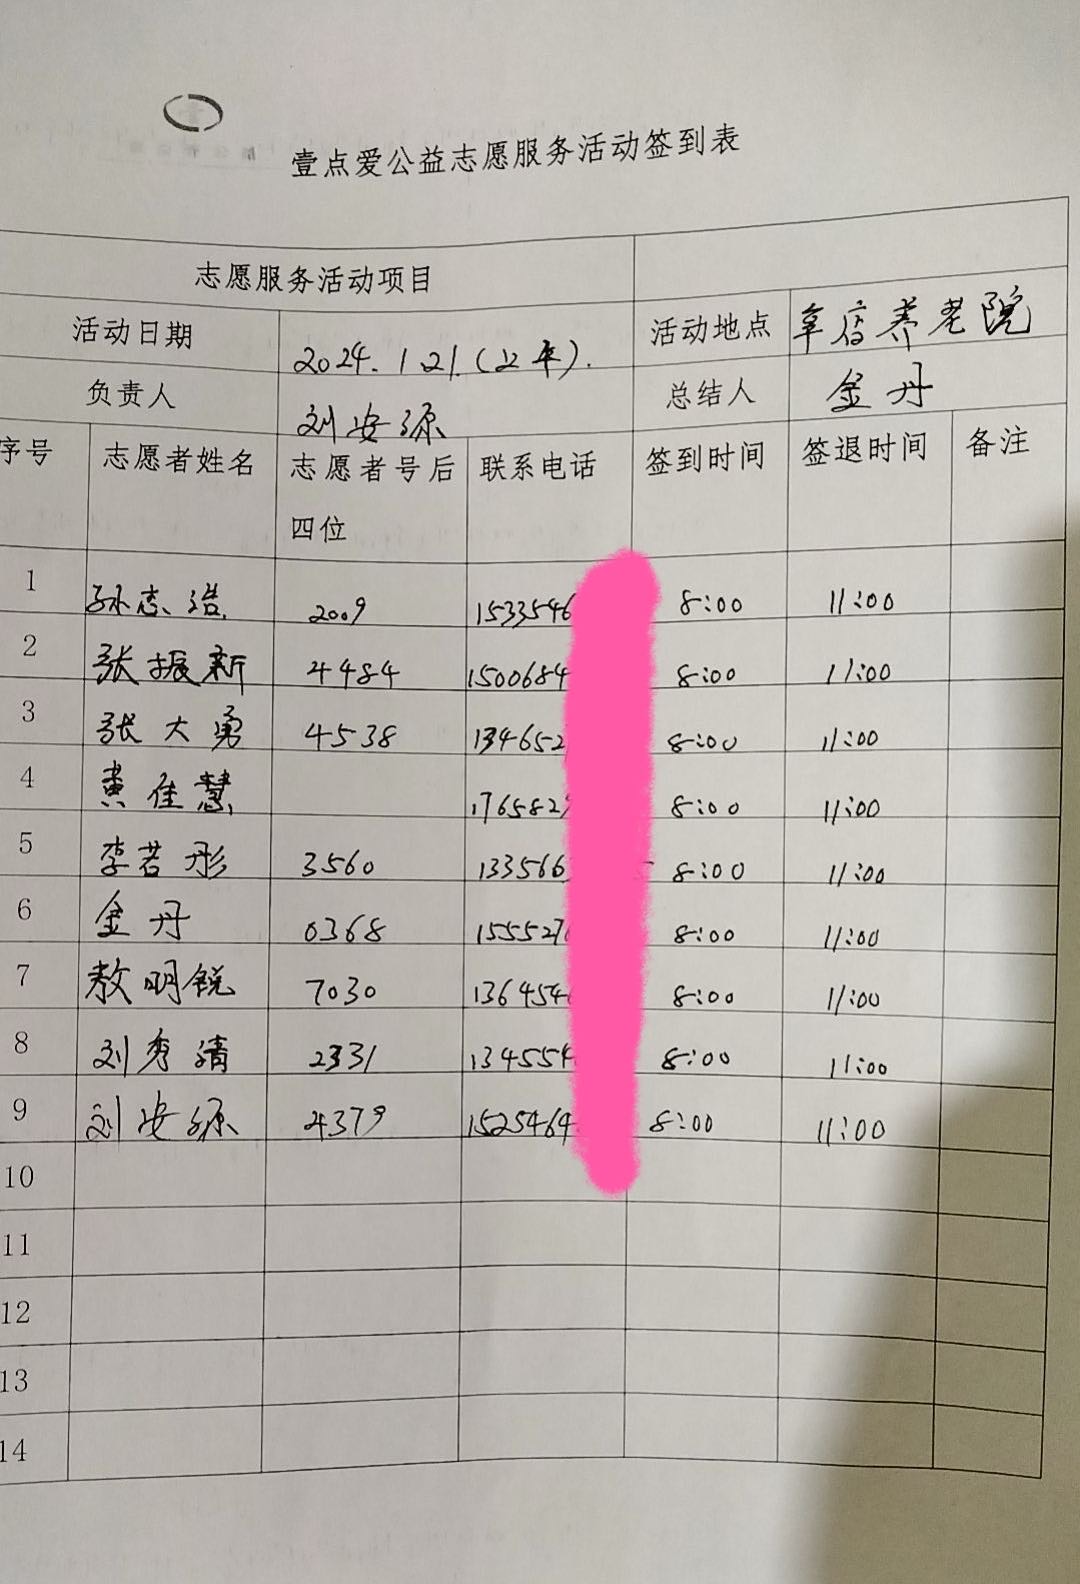 壹点爱公益志愿服务活动签到表
志愿服务活动项目
活动日期 2024.1.21.(上午). 活动地点 辛店养老院
负责人 刘安源 总结人 金丹
序号 志愿者姓名 志愿者号后四位 联系电话 签到时间 签退时间 备注
1 孙志浩 2009 1533546 8:00 11:00
2 张振新 4484 1500684 8:00 11:00
3 张大勇 4538 134652 8:00 11:00
4 黄佳慧 176582 8:00 11:00
5 李若彤 3560 133566 8:00 11:00
6 金丹 0368 155527 8:00 11:00
7 敖明锐 7030 136454 8:00 11:00
8 刘秀清 2331 134554 8:00 11:00
9 刘安源 4379 1525464 8:00 11:00
10
11
12
13
14